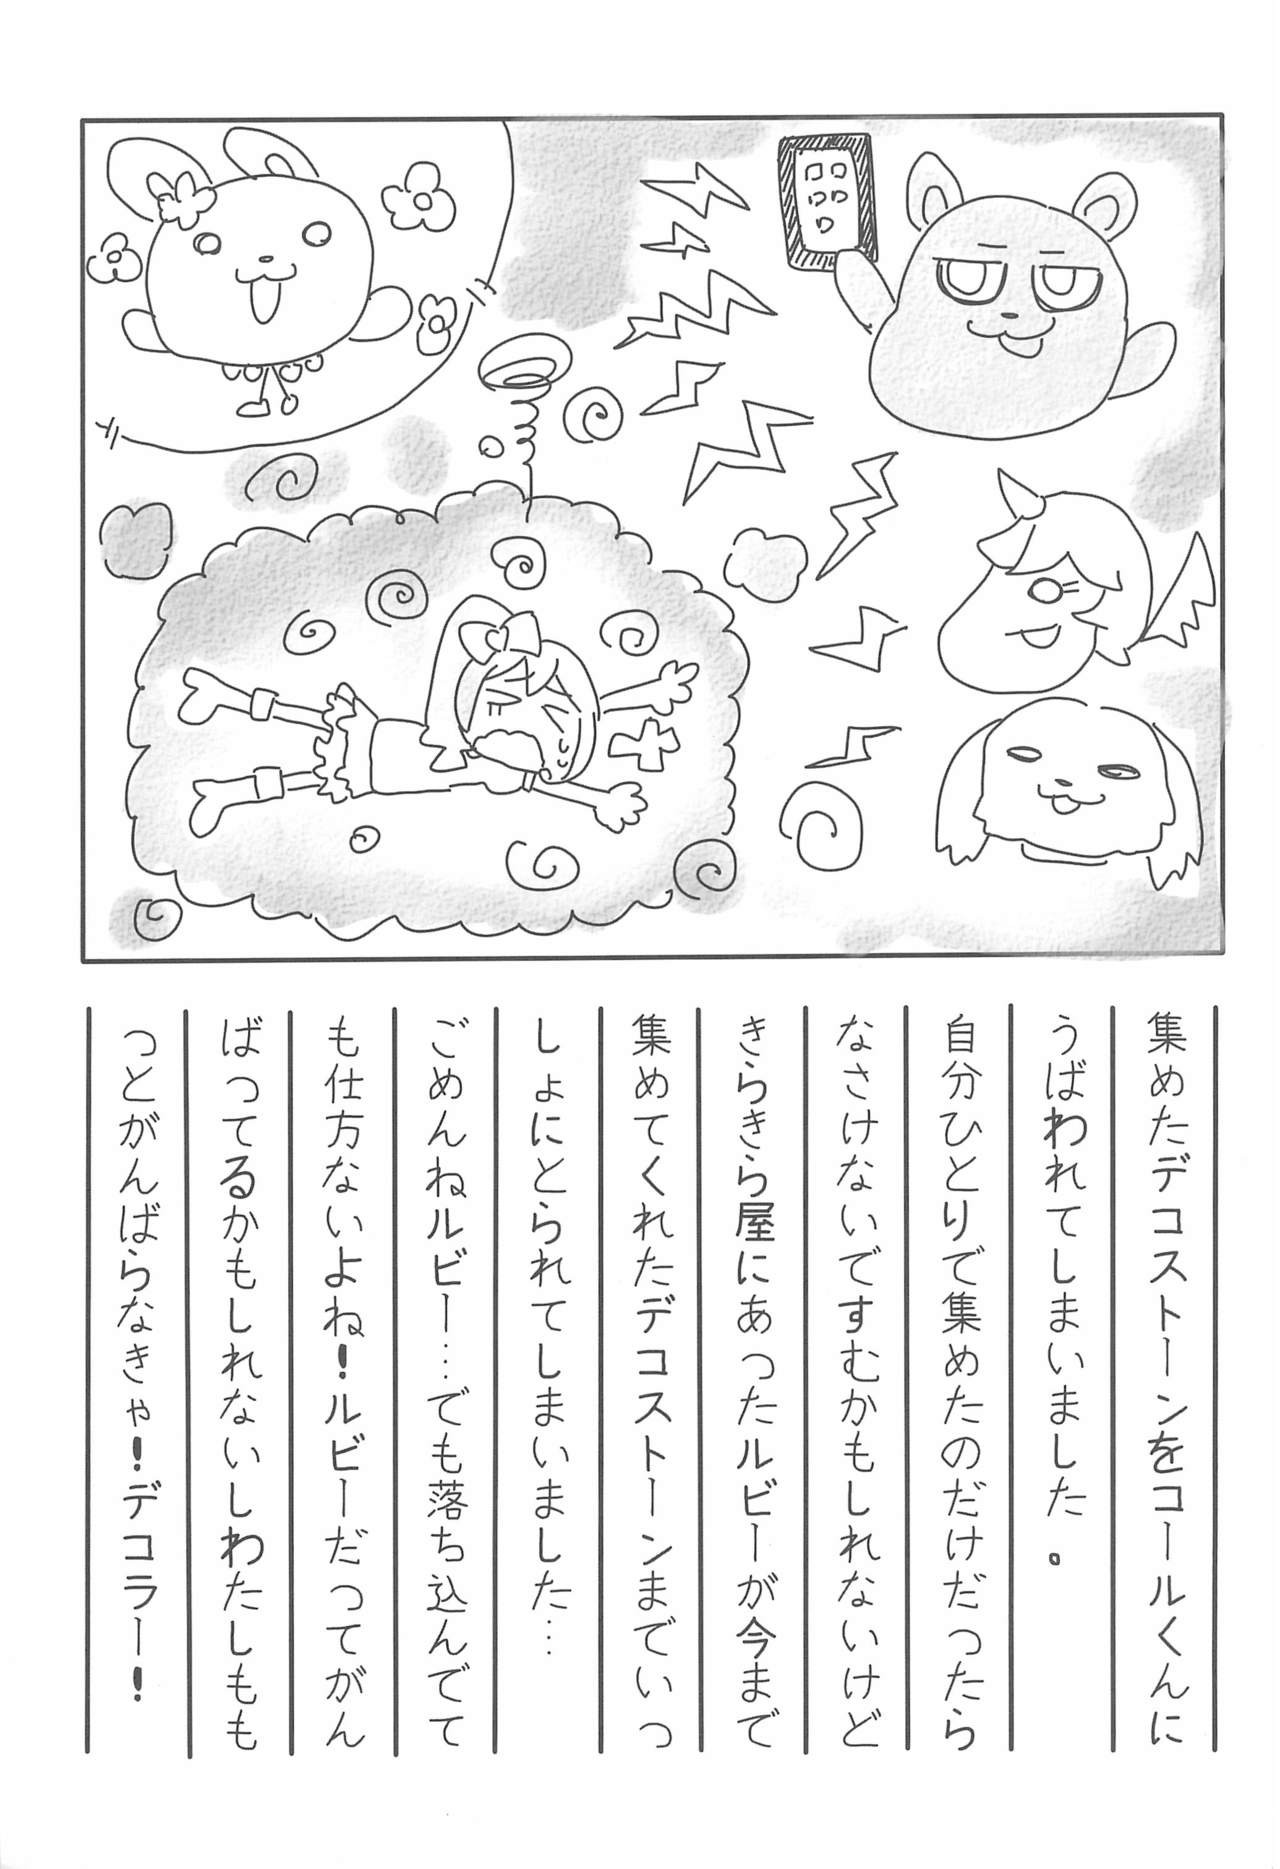 集めたデコストーンをコールくんに
うばわれてしまいました。
自分ひとりで集めたのだけだったら
なさけないですむかもしれないけど
きらきら屋にあったルビーが今まで
集めてくれたデコストーンまでいっ
しょにとられてしまいました…
ごめんねルビー…でも落ち込んでて
も仕方ないよね！ルビーだってがん
ばってるかもしれないしわたしもも
っとがんばらなきゃ！デコラー！